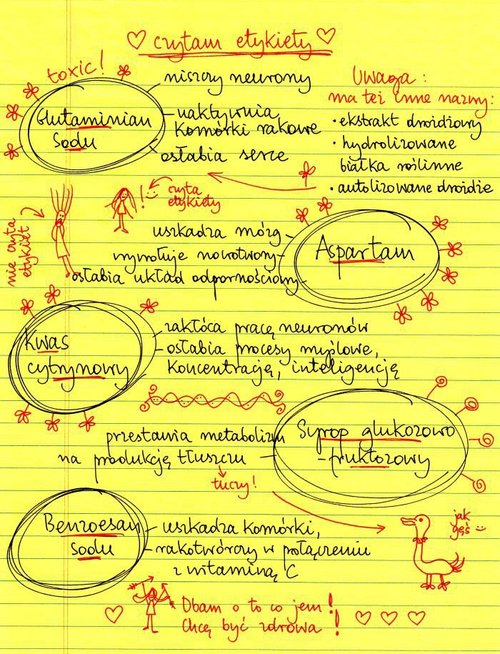 ♡ czytam etykiety ♡
toxic!
Glutaminian
Sodu
niszczy neurony
uaktywnia
komórki rakowe
osłabia serce
Uwaga:
ma też inne nazwy:
• ekstrakt drożdżowy
• hydrolizowane
białka roślinne
• autolizowane drożdże
nie czyta
etykiet
! czyta
etykiety
Aspartam
uszkadza mózg
wywołuje nowotwory
osłabia układ odpornościowy
Kwas
cytrynowy
zakłóca pracę neuronów
osłabia procesy myślowe,
koncentrację, inteligencję
Syrop glukozowo
-fruktozowy
przestawia metabolizm
na produkcję tłuszczu
tuczy!
jak
gęś
Benzoesan
Sodu
- uszkadza komórki,
- rakotwórczy w połączeniu
z witaminą C
Dbam o to co jem!
Chcę być zdrowa!